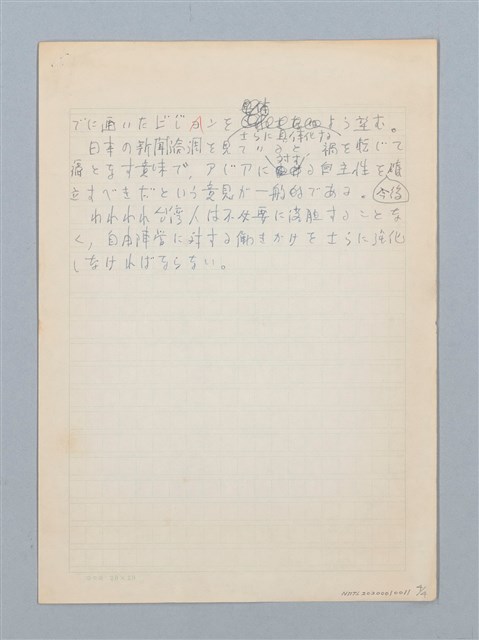 でに画いたビジョンを さらに具体化するよう望む。
日本の新聞論調を見ていると、禍を転じて
福となす意味で、アジアに対する自主性を確
立すべきだという意見が一般的である。今後
われわれ台湾人は不必要に落胆することな
く、自由陣営に対する働きかけをさらに強化
しなければならない。